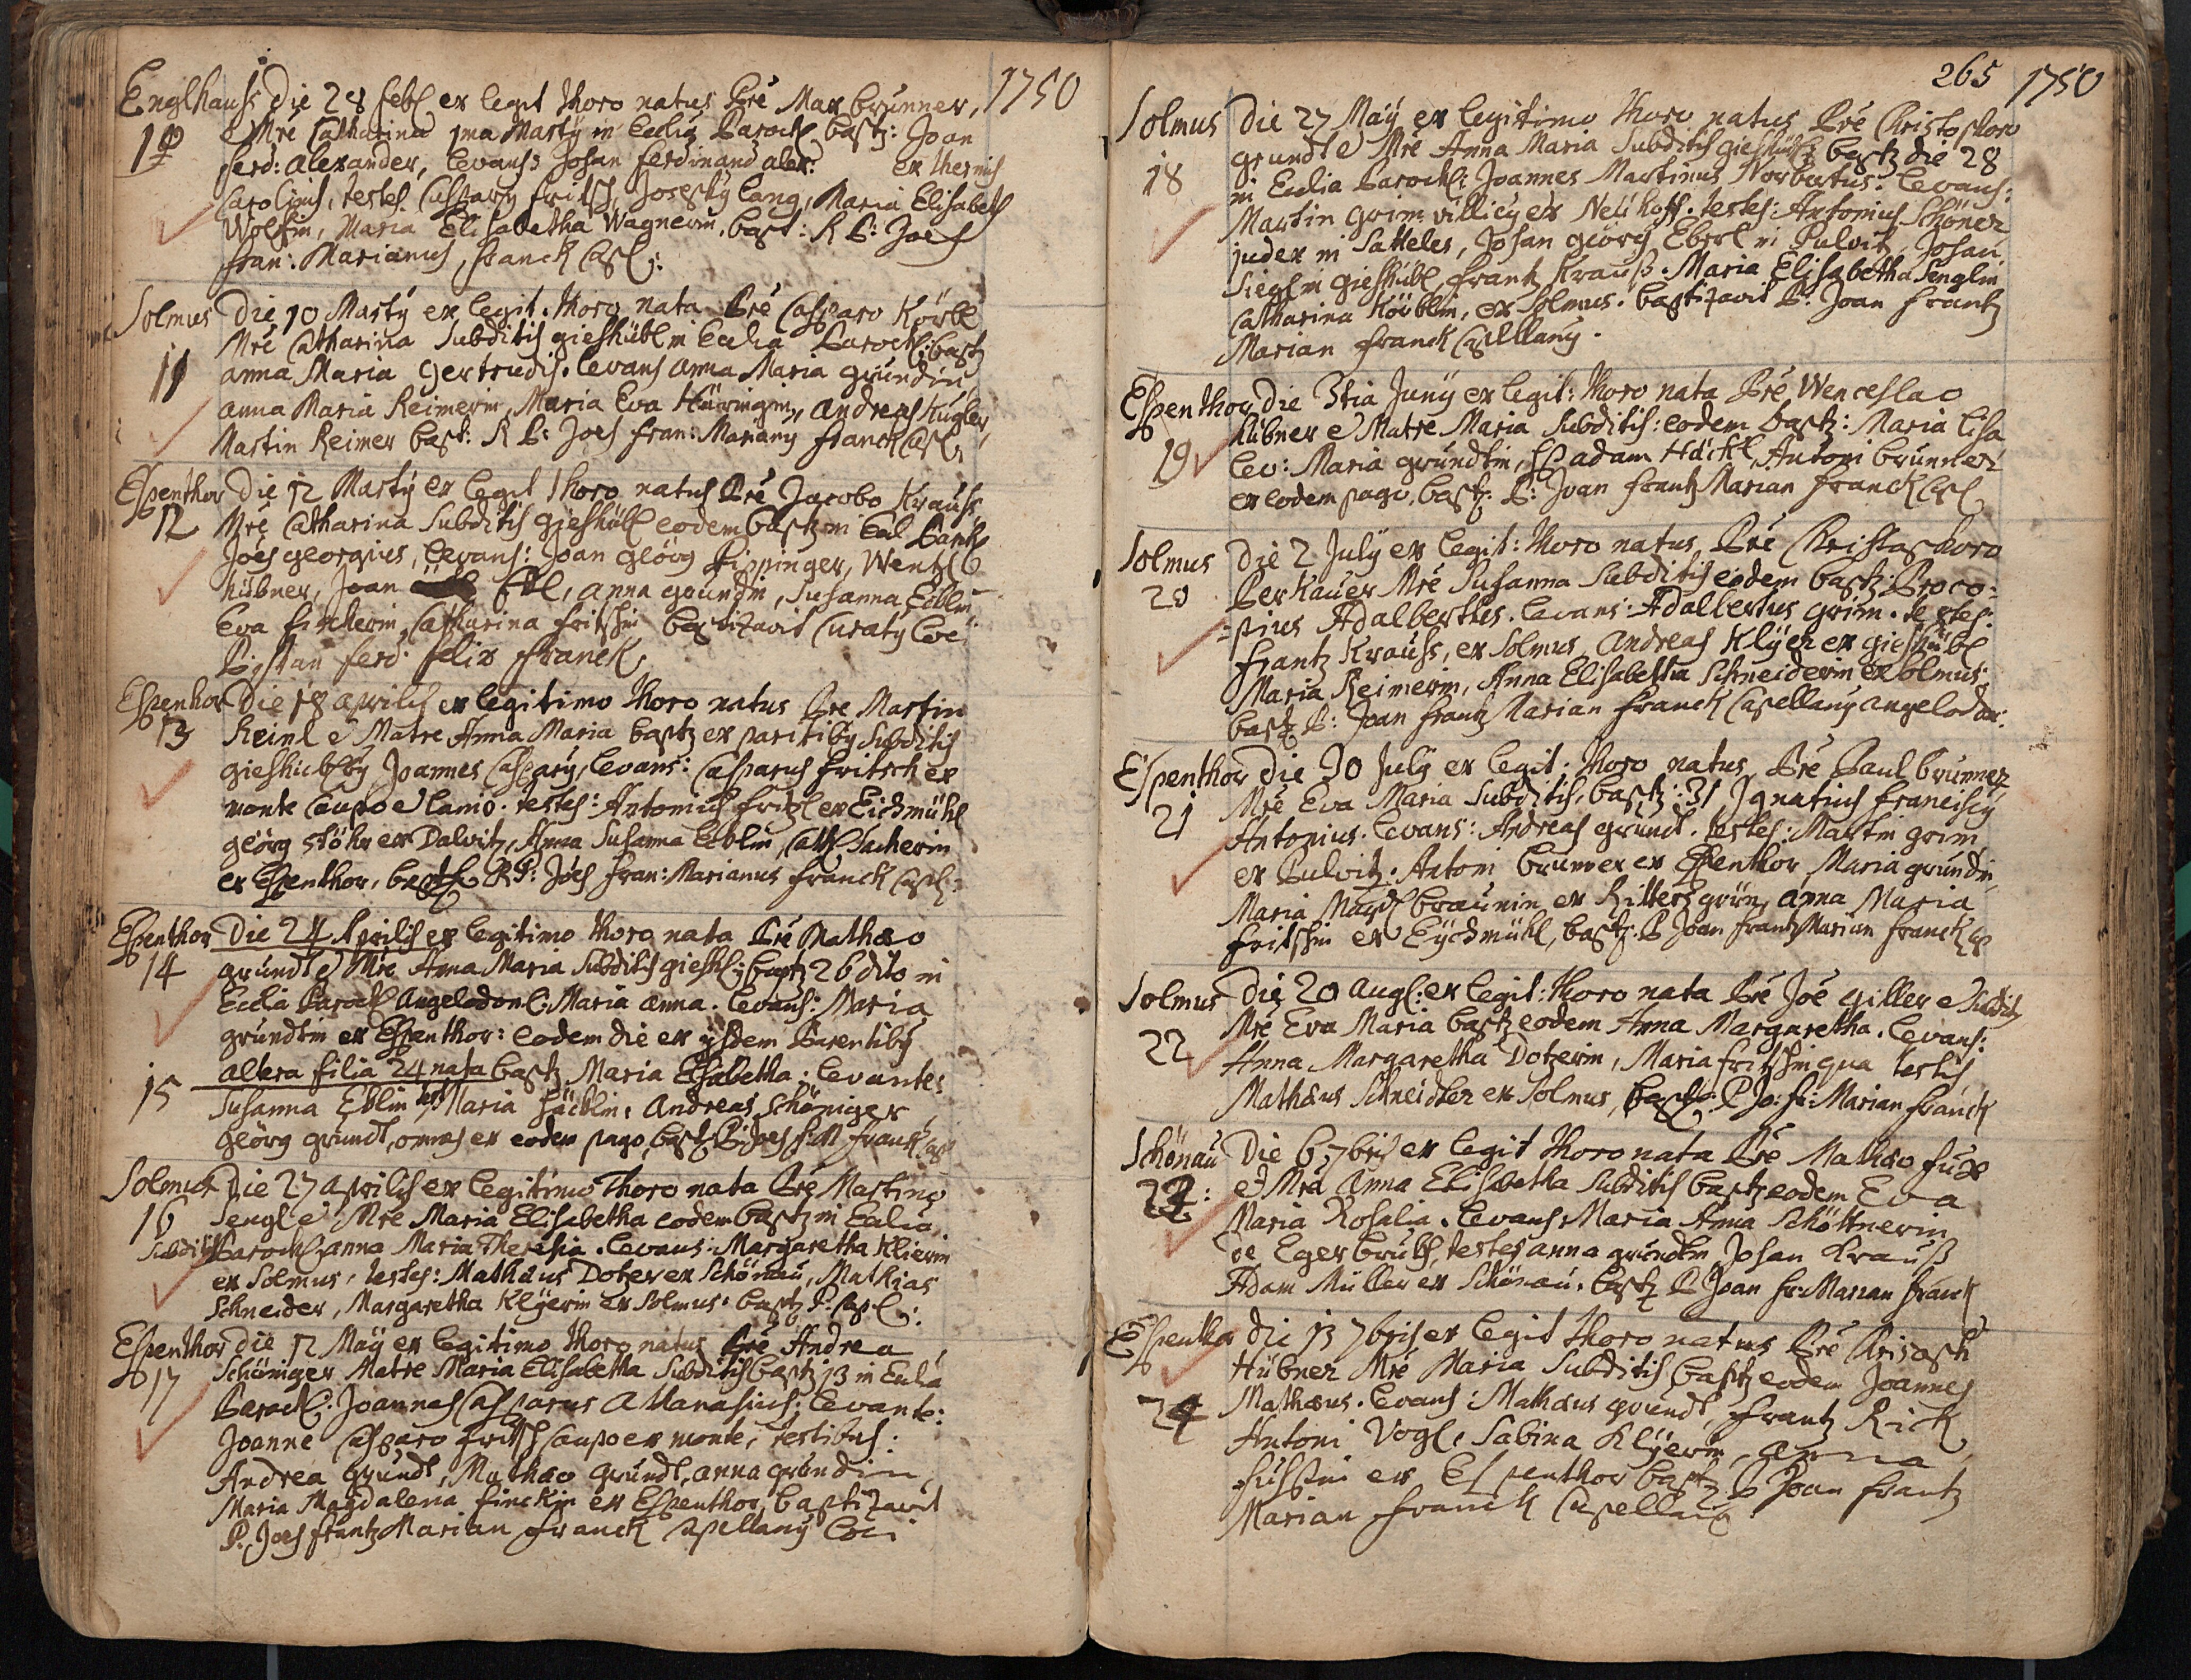 1750
Englhauss Die 28 Feb: ex legit thoro natus Pre Max Brunner,
10 e Mre Catharina 1ma Marty in Ecclia Paroch bapt: Joan
Ferd: Alexander, levans: Johan Ferdinand Alex: ex thermis
Carolinis, testes Caspary Fritsch, Josephy Lang, Maria Elisabeth
Wolfin, Maria Elisabetha Wagnerin, bapt: R P: Joes
Fran: Marianus, Franck Capl:
Solmus Die 10 Marty ex legit. thoro nata Pre Casparo Körbl
Mre Catharina Subditis gieshübl in Ecclia Paroch: bapt
11 anna Maria Gertrudis. levans Anna Maria gründin
anna Maria Reimerin, Maria Eva Häringin, Andreas Kugler,
Martin Reimer bapt: R P: Joes Fran: Mariany Franck Capl
Espenthor Die 12 Marty ex legit thoro natus Pre Jacobo Krauss
12 Mre Catharina Subditis gieshübl eodem baptz in Eccl Paroch
Joes georgius, levans: Joan geörg Pippinger, Wentzl
Hübner, Joan Ebl, Anna gründin, Susanna Eblin
Eva Fischerin, Catharina Fritschin baptizavit Curaty loci
Christian Ferd: Felix Franck,
Espenhor Die 18 aprilis ex legitimo thoro natus Pre Martin
13 Reinl e Matre Anna Maria baptz ex paritiby Subditis
gieshübl: Joannes Caspary, levans: Casparus Fritsch ex
monte caupo e lanio. testes: Antonius Fritzl ex Eichmühl
geörg Stöhr ex Dalvitz, Anna Susanna Eblin, Cath. Sacherin
ex Espenthor, bapt RP: Joes Fran: Marianus Franck Capl:
Espenthor Die 24 Aprilis ex legitimo thoro nata Pre Mathæo
14 gründl e Mre Anna Maria Subditis giesh: baptz 26 dito in
Ecclia Paroch Angelodonl: Maria anna. levans: Maria
gründlin ex Espenthor: eodem die ex ijsdem Parentiby
15 altera filia 24 nata baptz Maria Elsabetha. levantes
Susanna Eblin test Maria Häcklin, Andreas Schöniger
Geörg gründl, omnes ex eodem pago, bapt P: Joes F: M Franck Cap
Solmus Die 27 aprilis ex legitimo Thoro nata Pre Martino
16 Sengl e Mre Maria Elisabetha eodem baptz in Ecclia
Subditis Paroch anna Maria Theresia. levans: Margaretha Klierin
ex Solmus, testes: Mathæus Doterer ex Schönau, Mathias
Schneider, Margaretha Klÿerin ex Solmus. bapt P: Capl:
Espenthor Die 12 Maÿ ex legitimo thoro natus Pre Andrea
17 Schöniger Matre Maria Elisabetha Subditis baptz 13 in Eccla
Paroch: Joannes Casparus Athanasius: levante:
Joanne Casparo Fritsch caupo ex monte, testibus:
Andrea gründl, Mathæo gründl, anna gründin
Maria Magdalena Finckin ex Espenthor, baptizavit
P. Joes Frantz Marian Franck Capellany loci
265 1750
Solmus Die 27 Maÿ ex legitimo thoro natus Pre Christophoro
18 gründl e Mre Anna Maria Subditis gieshübl: baptz die 28
in Ecclia Paroch: Joannes Martinus Norbertus. levans:
Martin grim villicy ex Neühoff. testes: Antonius Schöner
judex in Satteles, Johan geörg Eberl in Pulvitz, Johan
Siegl in gieshübl, Frantz Krauß. Maria Elisabetha Senglin
Catharina Körblin, ex Solmus. baptizavit P: Joan Frantz
Marian Franck Capellany.
Espenthor Die 3tia Junÿ ex legit: thoro nata Pre Wenceslao
Hübner e Matre Maria Subditis: eodem baptz: Maria Lisa
19 lev: Maria gründlin, adam Häckl, Antoni Brunner
ex eodem pago, bapt: P: Joan Frantz Marian Franck Capl
Solmus Die 2 Julÿ ex legit: thoro natus Pre Christophoro
20 Perkauer Mre Susanna Subditis eodem baptz: Proco:
=pius Adalbertus. levans: Adalbertus grim. testes:
Frantz Krauss, ex Solmus, Andreas Klÿer ex gieshübl
Maria Reimerin, Anna Elisabetha Schneiderin ex Solmus.
bapt P: Joan Frantz Marian Franck Capellany angelodon:
Espenthor Die 30 Julÿ ex legit. thoro natus Pre Paul Brunner
21 Mre Eva Maria Subditis, baptz: 31 Ignatius Franciscy
Antonius. levans: Andreas gründl. testes: Martin grim
ex Pulvitz. Antoni Brunner ex Espenthor Maria gründin
Maria Magd: Braunin ex Rittersgrün, Anna Maria
Fritschin ex Eÿchmühl, bapt: P Joan Frantz Marian Franck Cap
Solmus Die 20 Aug: ex legit: thoro nata Pre Joe giller e Subditis
Mre Eva Maria baptz eodem Anna Margaretha. levans:
22 Anna Margaretha Doterin, Maria Fritschin qua testis
Mathæus Schneider ex Solmus, bapt: P Jo: Fr: Marian Franck
Schönau Die 6 7bris ex legit thoro nata Pre Mathæo Fux
23: e Mre Anna Elisabetha Subditis baptz eodem Eva
Maria Rosalia. levans Maria Anna Schöttnerin
de Egerbruck, testes anna gründlin, Johan Krauß
Adam Müller ex Schönau. baptz P Joan Fr: Marian Franck
Espenthor Die 13 7bris ex legit thoro natus Pre Christoph
Hübner Mre Maria Subditis baptz eodem Joannes
24 Mathæus. levans: Mathæus gründl, Frantz Rick
Antoni Vogl, Sabina Klÿerin, anna
ex Espenthor bapt P Joan Frantz
Marian Franck Capellany